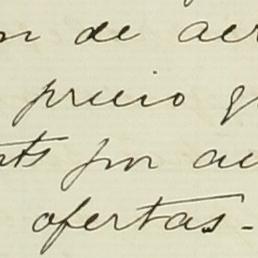 n de acr
precio q
ts por au
ofertas-